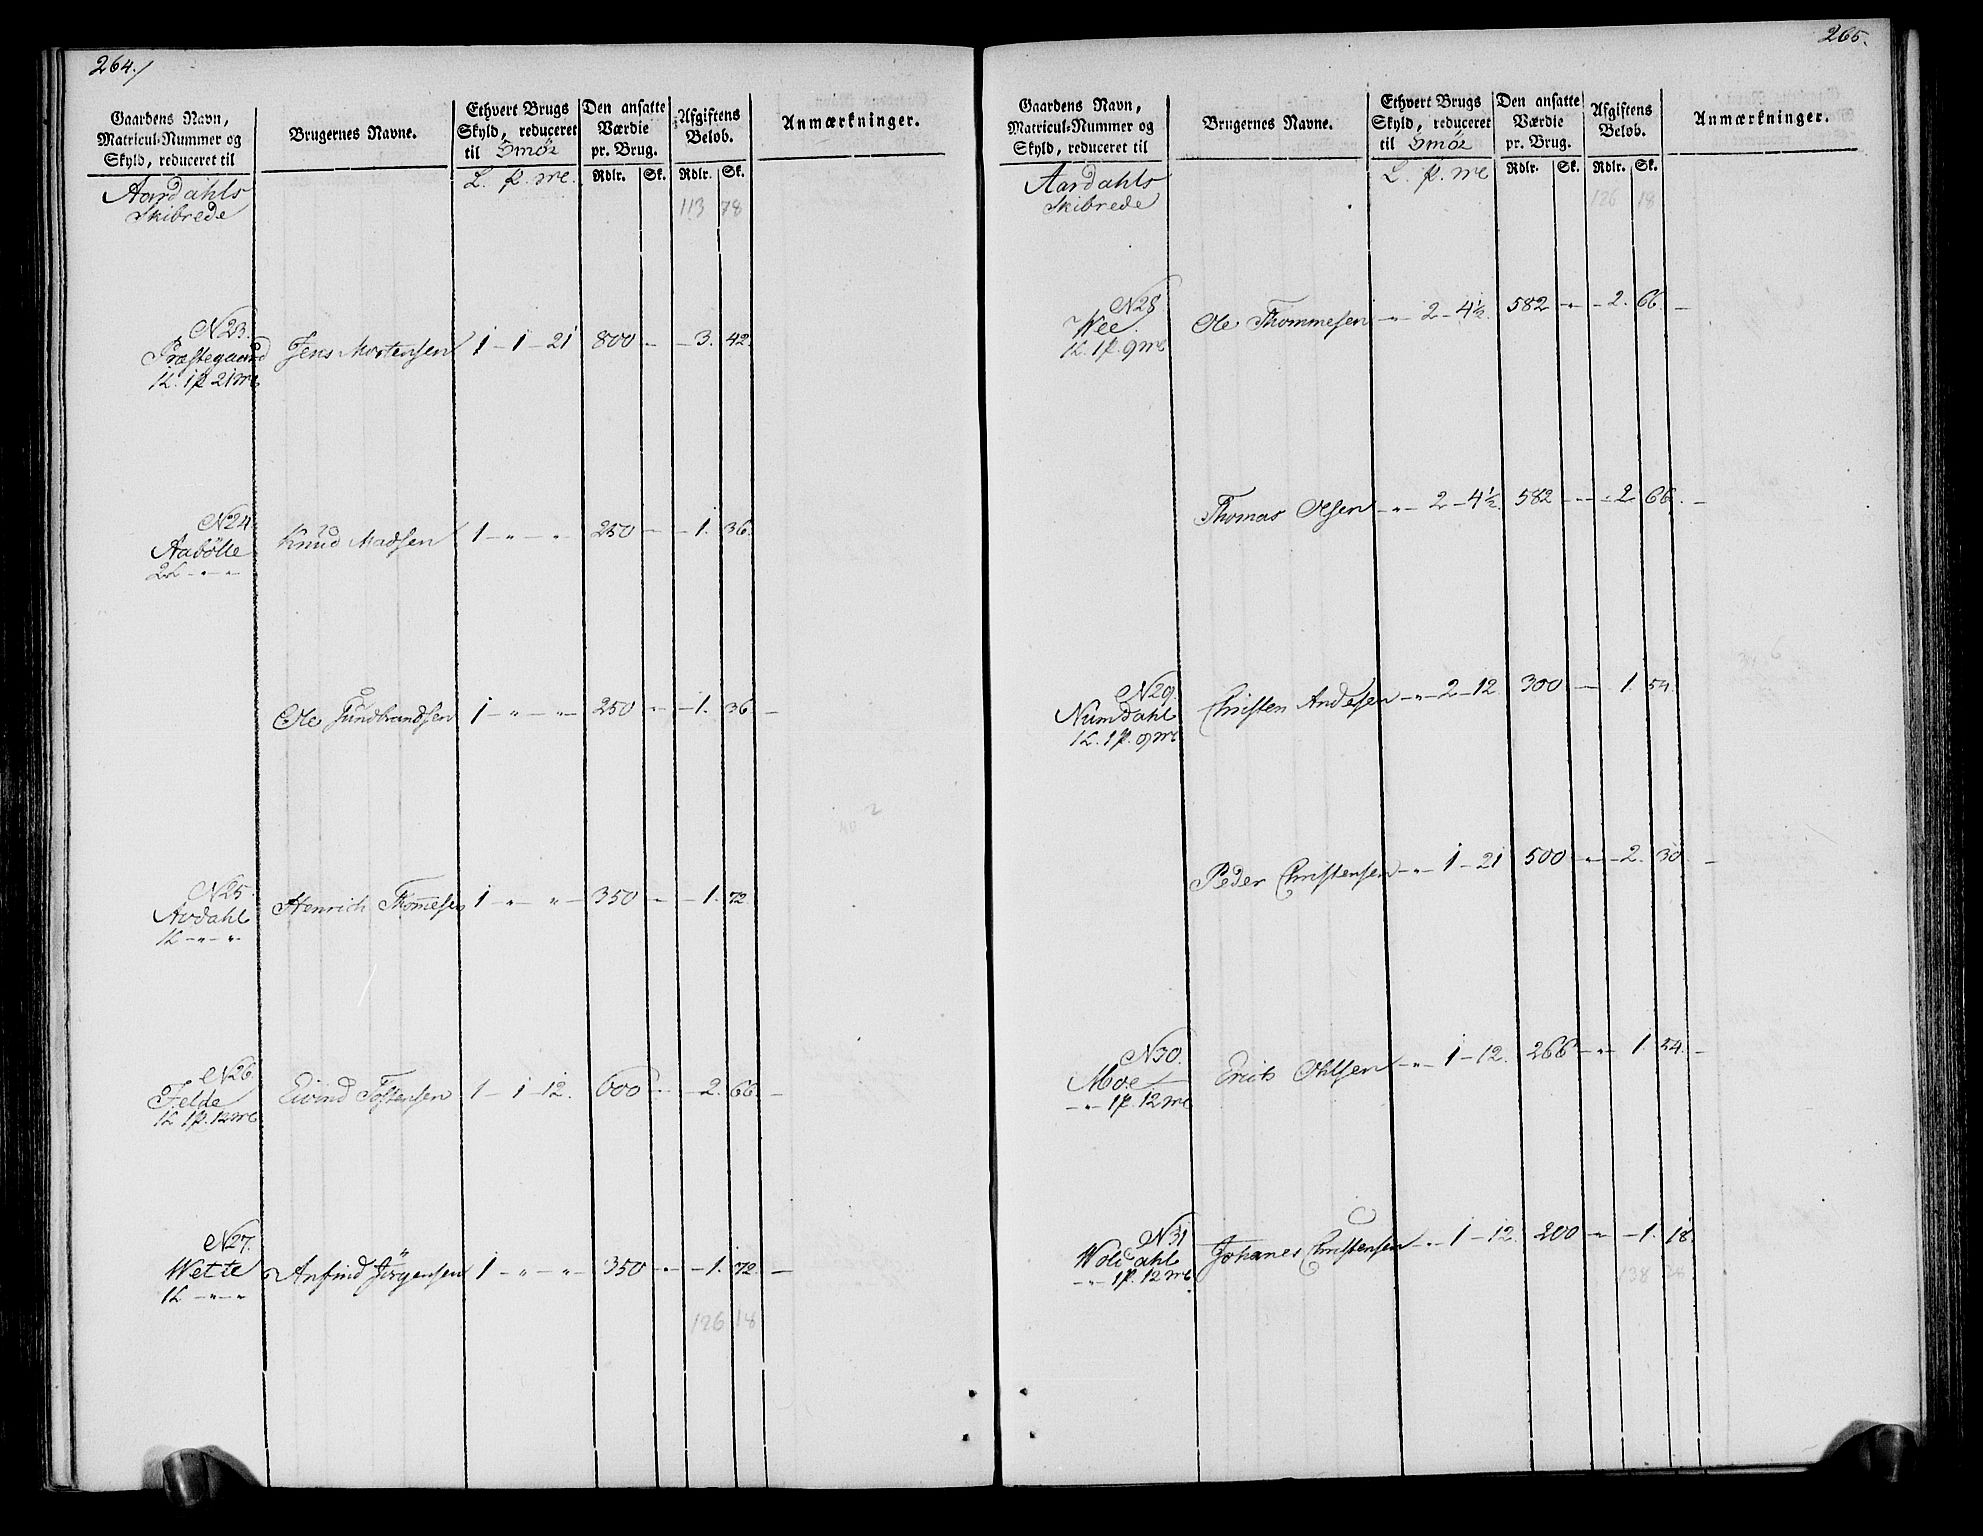 264./
Gaardens Navn, Matricul-Nummer og Skyld, reduceret til
Brugernes Navne.
Ethvert Brugs Skyld, reduceret til Smör
Den ansatte Værdie pr. Brug.
Afgiftens Beløb.
Anmærkninger.
L. p. mk. Rdlr. Sk. Rdlr. Sk.
Aardahls
Skibrede
113 78
N23.
Præstegaard Jens Mortensen 1 - 1 - 21 800 - - 3. 42.
1L. 1p 21mk
N24
Aabölle Knud Madsen 1 - " - " 250 - - 1. 36.
2L - " - "
Ole Gundbrandsen 1 - " - " - 250 - - 1. 36 -
N25.
Avdahl Henrich Thomesen 1 - " - " - 350 - - 1. 72
1L - " - " -
N26
Felde Eivind Tostensen 1 - 1 - 12. 600 - - 2. 66. -
1L 1p. 12mk
N27.
Wette Anfind Jörgensen 1 - " - " - 350 - - 1. 72. -
1L - " - "
126 18
265.
Gaardens Navn, Matricul-Nummer og Skyld, reduceret til
Brugernes Navne.
Ethvert Brugs Skyld, reduceret til Smör
Den ansatte Værdie pr. Brug.
Afgiftens Beløb.
Anmærkninger.
L. p. mk Rdlr. Sk. Rdlr. Sk.
Aardahls
Skibrede
126 18
N28
Wee Ole Thommesen - " - 2 - 4½. 582 - " - 2. 66 -
1L. 1p. 9mk
Thomas Olsen - " - 2 - 4½. 582 - - - 2. 66. -
N29.
Numdahl Christen Andesen - " - 2 - 12. 300 - 1. 54.
1L. 1p. 9mk
Peder Christensen - " - 1 - 21 500 - " - 2. 30 -
N30.
Moe Erick Ohlsen - " - 1 - 12. 266 - " - 1. 54. -
- " - 1p. 12mk
N31
Woldahl Johanes Christensen - " - 1 - 12. 200 " - 1. 18.
- " - 1p. 12mk.
138